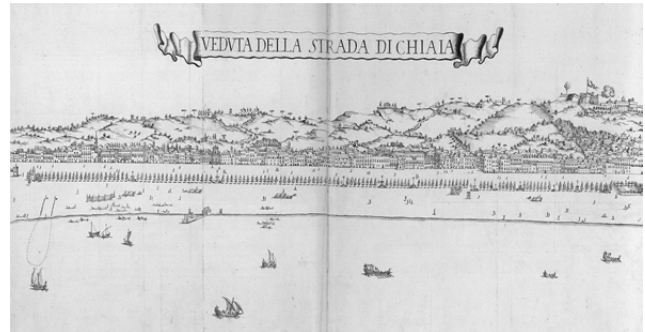 VEDVTA DELLA STRADA DI CHIAIA